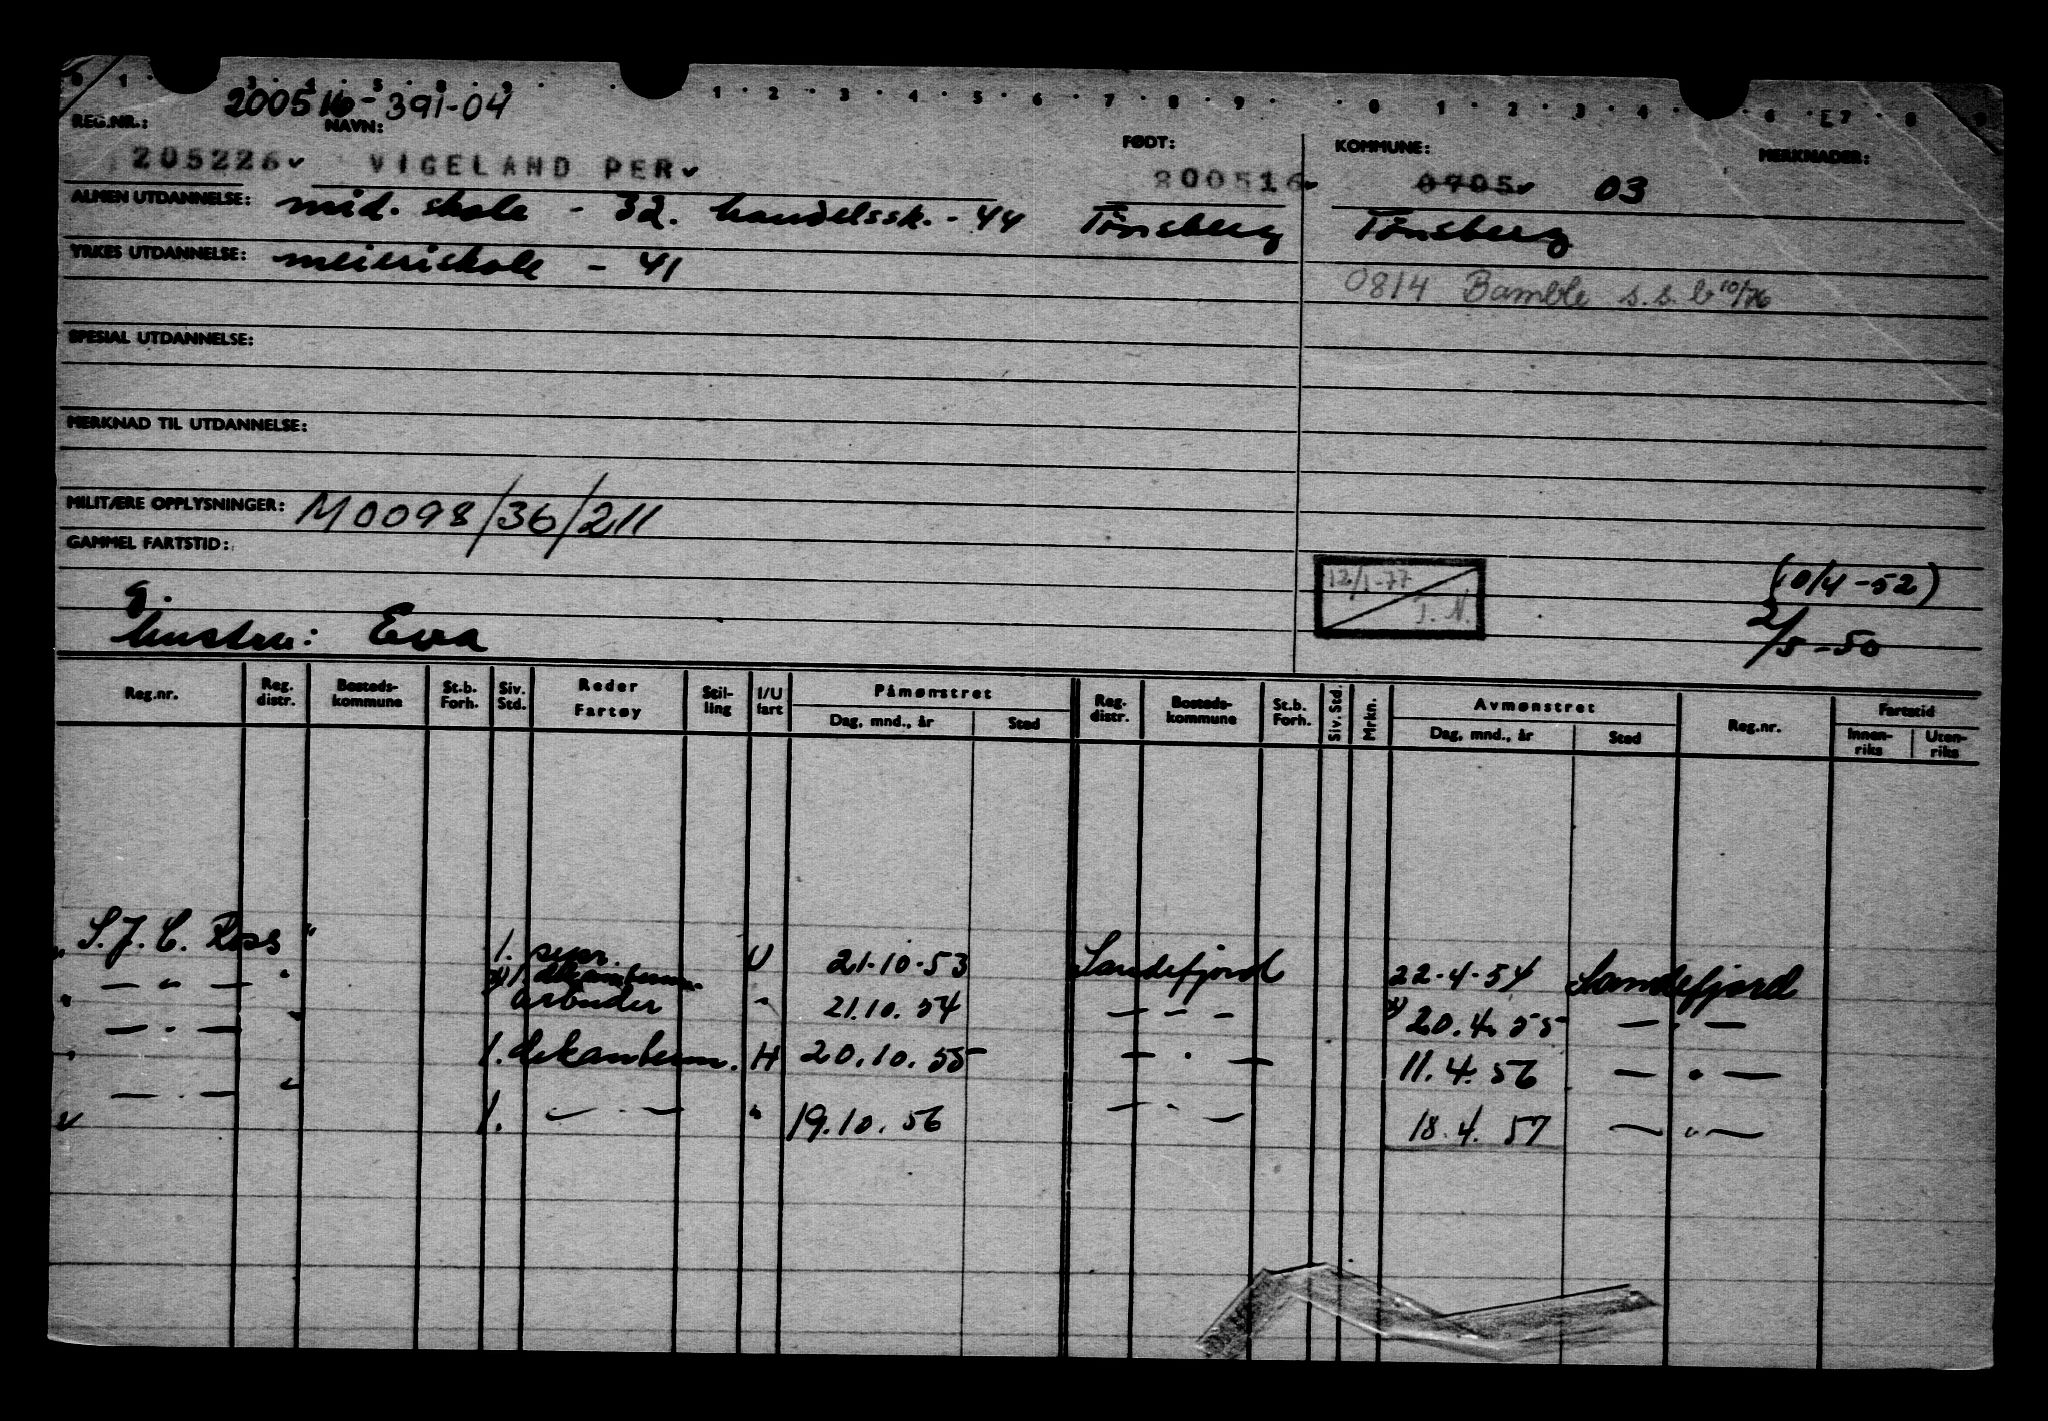 0 1 · 3 · 4 · 5 · 8 · 9 · · 1 · 2 · 3 · 4 · 5 · 6 · 7 · 8 · 9 · · 0 1 · 2 · 3 · 4 · · 6 · E7 · 8 9
200516-391-04
REG.NR.: NAVN: FØDT: KOMMUNE: MERKNADER:
205226 VIGELAND PER 200516 0705 03
ALMEN UTDANNELSE: mid. skole - 32. handelssk. - 44 Tönsberg Tönsberg
YRKES UTDANNELSE: meieriskole - 41
0814 Bamble s.s. b 10/76
SPESIAL UTDANNELSE:
MERKNAD TIL UTDANNELSE:
MILITÆRE OPPLYSNINGER: M0098/36/211
GAMMEL FARTSTID:
12/1-77 T.N. (10/4-52)
g. 2/5-50
hustru: Eva
Reg.nr. Reg. distr. Bosteds-kommune St.b. Forh. Siv. Std. Reder Fartøy Stil-ling I/U fart Påmønstret Dag, mnd., år Sted Reg. distr. Bosteds-kommune St.b. Forh. Siv. Std. Mrkn. Avmønstret Dag, mnd., år Sted Reg.nr. Fartstid Innen-riks Uten-riks
" S.J.C. Ross " 1. sepr. U 21-10-53 Sandefjord 22-4-54 Sandefjord
" — " — " x) 1. dekanterm. arbeider " 21.10.54 — " — x) 20.4.55 — " —
" — " — " 1. dekanterm. H 20.10.55 — " — 11.4.56 — " —
" — " — " 1. — " — " 19.10.56 — " — 18.4.57 — " —